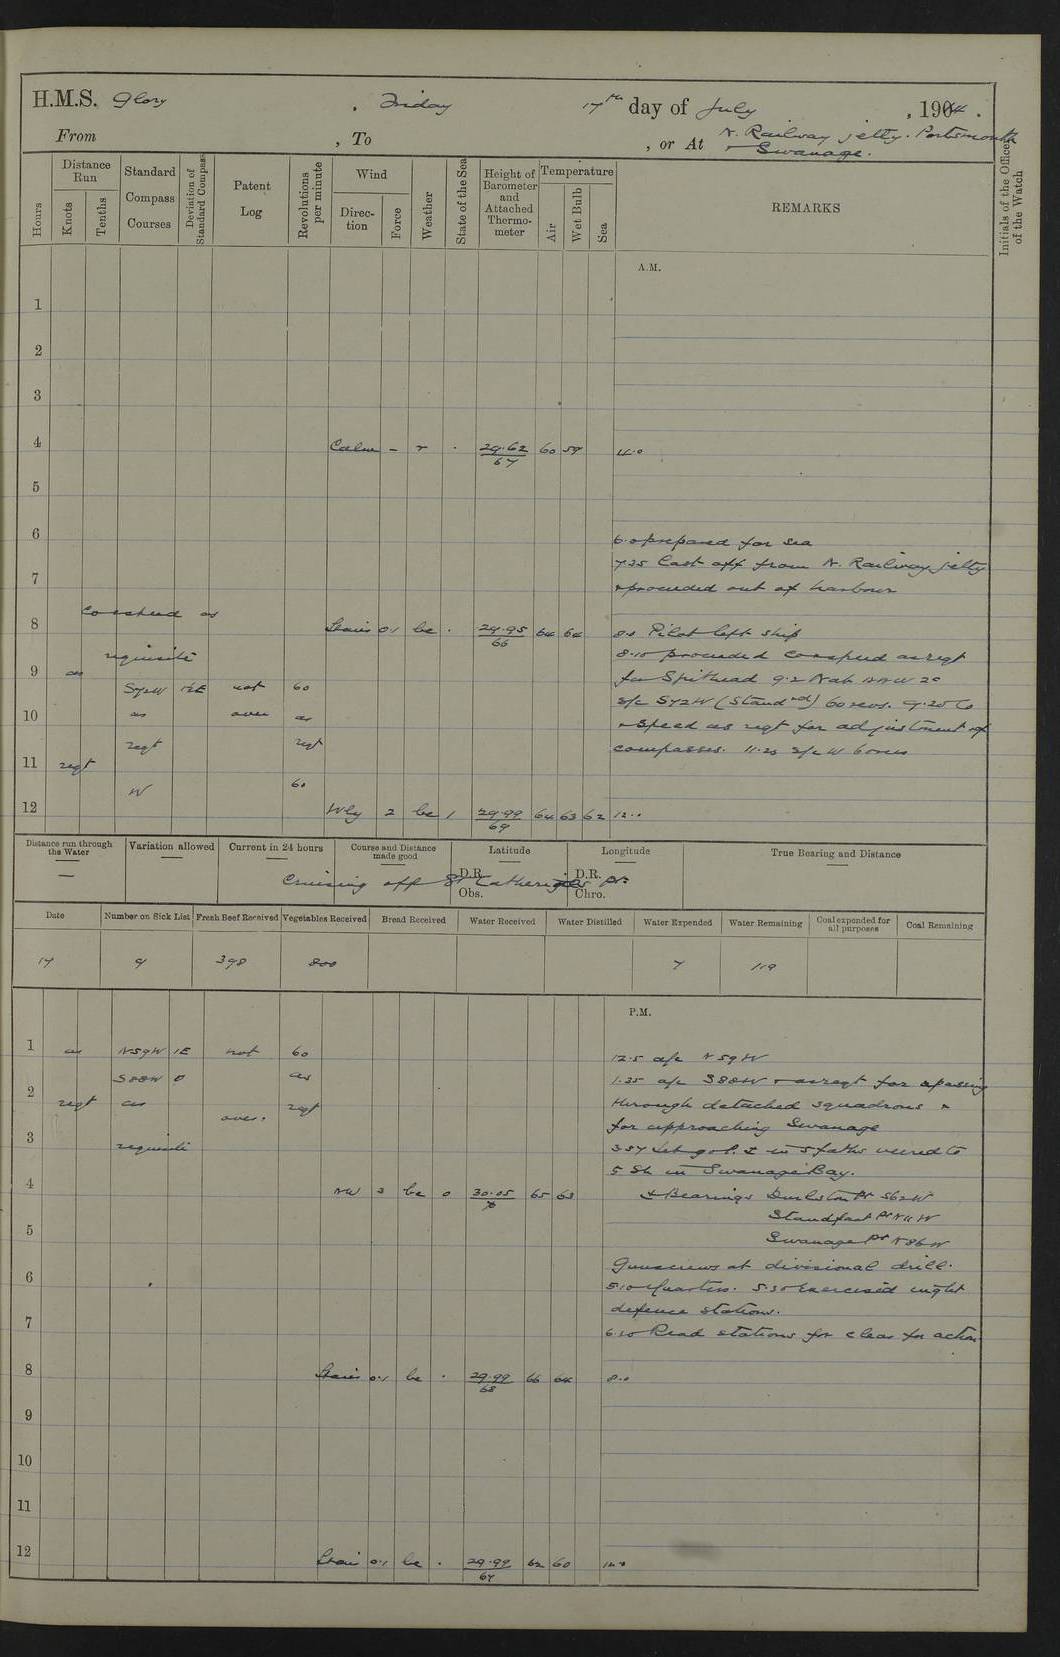 H.M.S. Glory , Friday 17th day of July , 1904 .
From , To , or At N. Railway jetty. Portsmouth
+ Swanage.
Hours
Distance Run
Knots
Tenths
Standard Compass Courses
Deviation of Standard Compass
Patent Log
Revolutions per minute
Wind
Direction
Force
Weather
State of the Sea
Height of Barometer and Attached Thermometer
Temperature
Air
Wet Bulb
Sea
REMARKS
Initials of the Officer of the Watch
A.M.
1
2
3
4 Calm - r . 29.62 60 59 4.0
67
5
6 6.0 prepared for sea
7.25 Cast off from N. Railway jetty
7 + proceeded out of harbour
Co + speed as
8 0.1 bc . 29.95 64 64 8.0 Pilot left ship
66
requisite 8.10 proceeded Co + speed as reqt
9 as for Spithead 9.2 Nab
S72W not 60 a/c S72W (Standrd) 60 revs. 9.20 Co
10 as over as + Speed as reqt for adjustment of
reqt reqt compasses. 11.20 a/c W 60 revs
11 reqt
W 60
12 Wly 2 bc 1 29.99 64 63 62 12.0
69
Distance run through the Water
Variation allowed
Current in 24 hours
Course and Distance made good
Latitude
Longitude
True Bearing and Distance
D.R. D.R.
Cruising off St Catherines Pt
Obs. Chro.
Date
Number on Sick List
Fresh Beef Received
Vegetables Received
Bread Received
Water Received
Water Distilled
Water Expended
Water Remaining
Coal expended for all purposes
Coal Remaining
17 9 398 800 7 119
P.M.
1 as N59W 1E not 60 12.5 a/c N59W
S88W 0 as 1.35 a/c S88W + as reqt for passing
2 reqt as over. reqt through detached squadrons +
for approaching Swanage
3 requisite 3.57 Let go P. in 5 faths veered to
5 Sh in Swanage Bay.
4 NW 3 bc 0 30.05 65 63 Bearings Durlston Pt S62W
70
Standfast Pt N11W
5 Swanage Pr N86W
Guns crews at divisional drill.
6 5.10 Quarters. 5.30 Exercised night
defence stations.
7 6.10 Read stations for clear for action
8 0.1 bc . 29.99 66 64 8.0
68
9
10
11
12 0.1 bc . 29.99 62 60 12.0
67